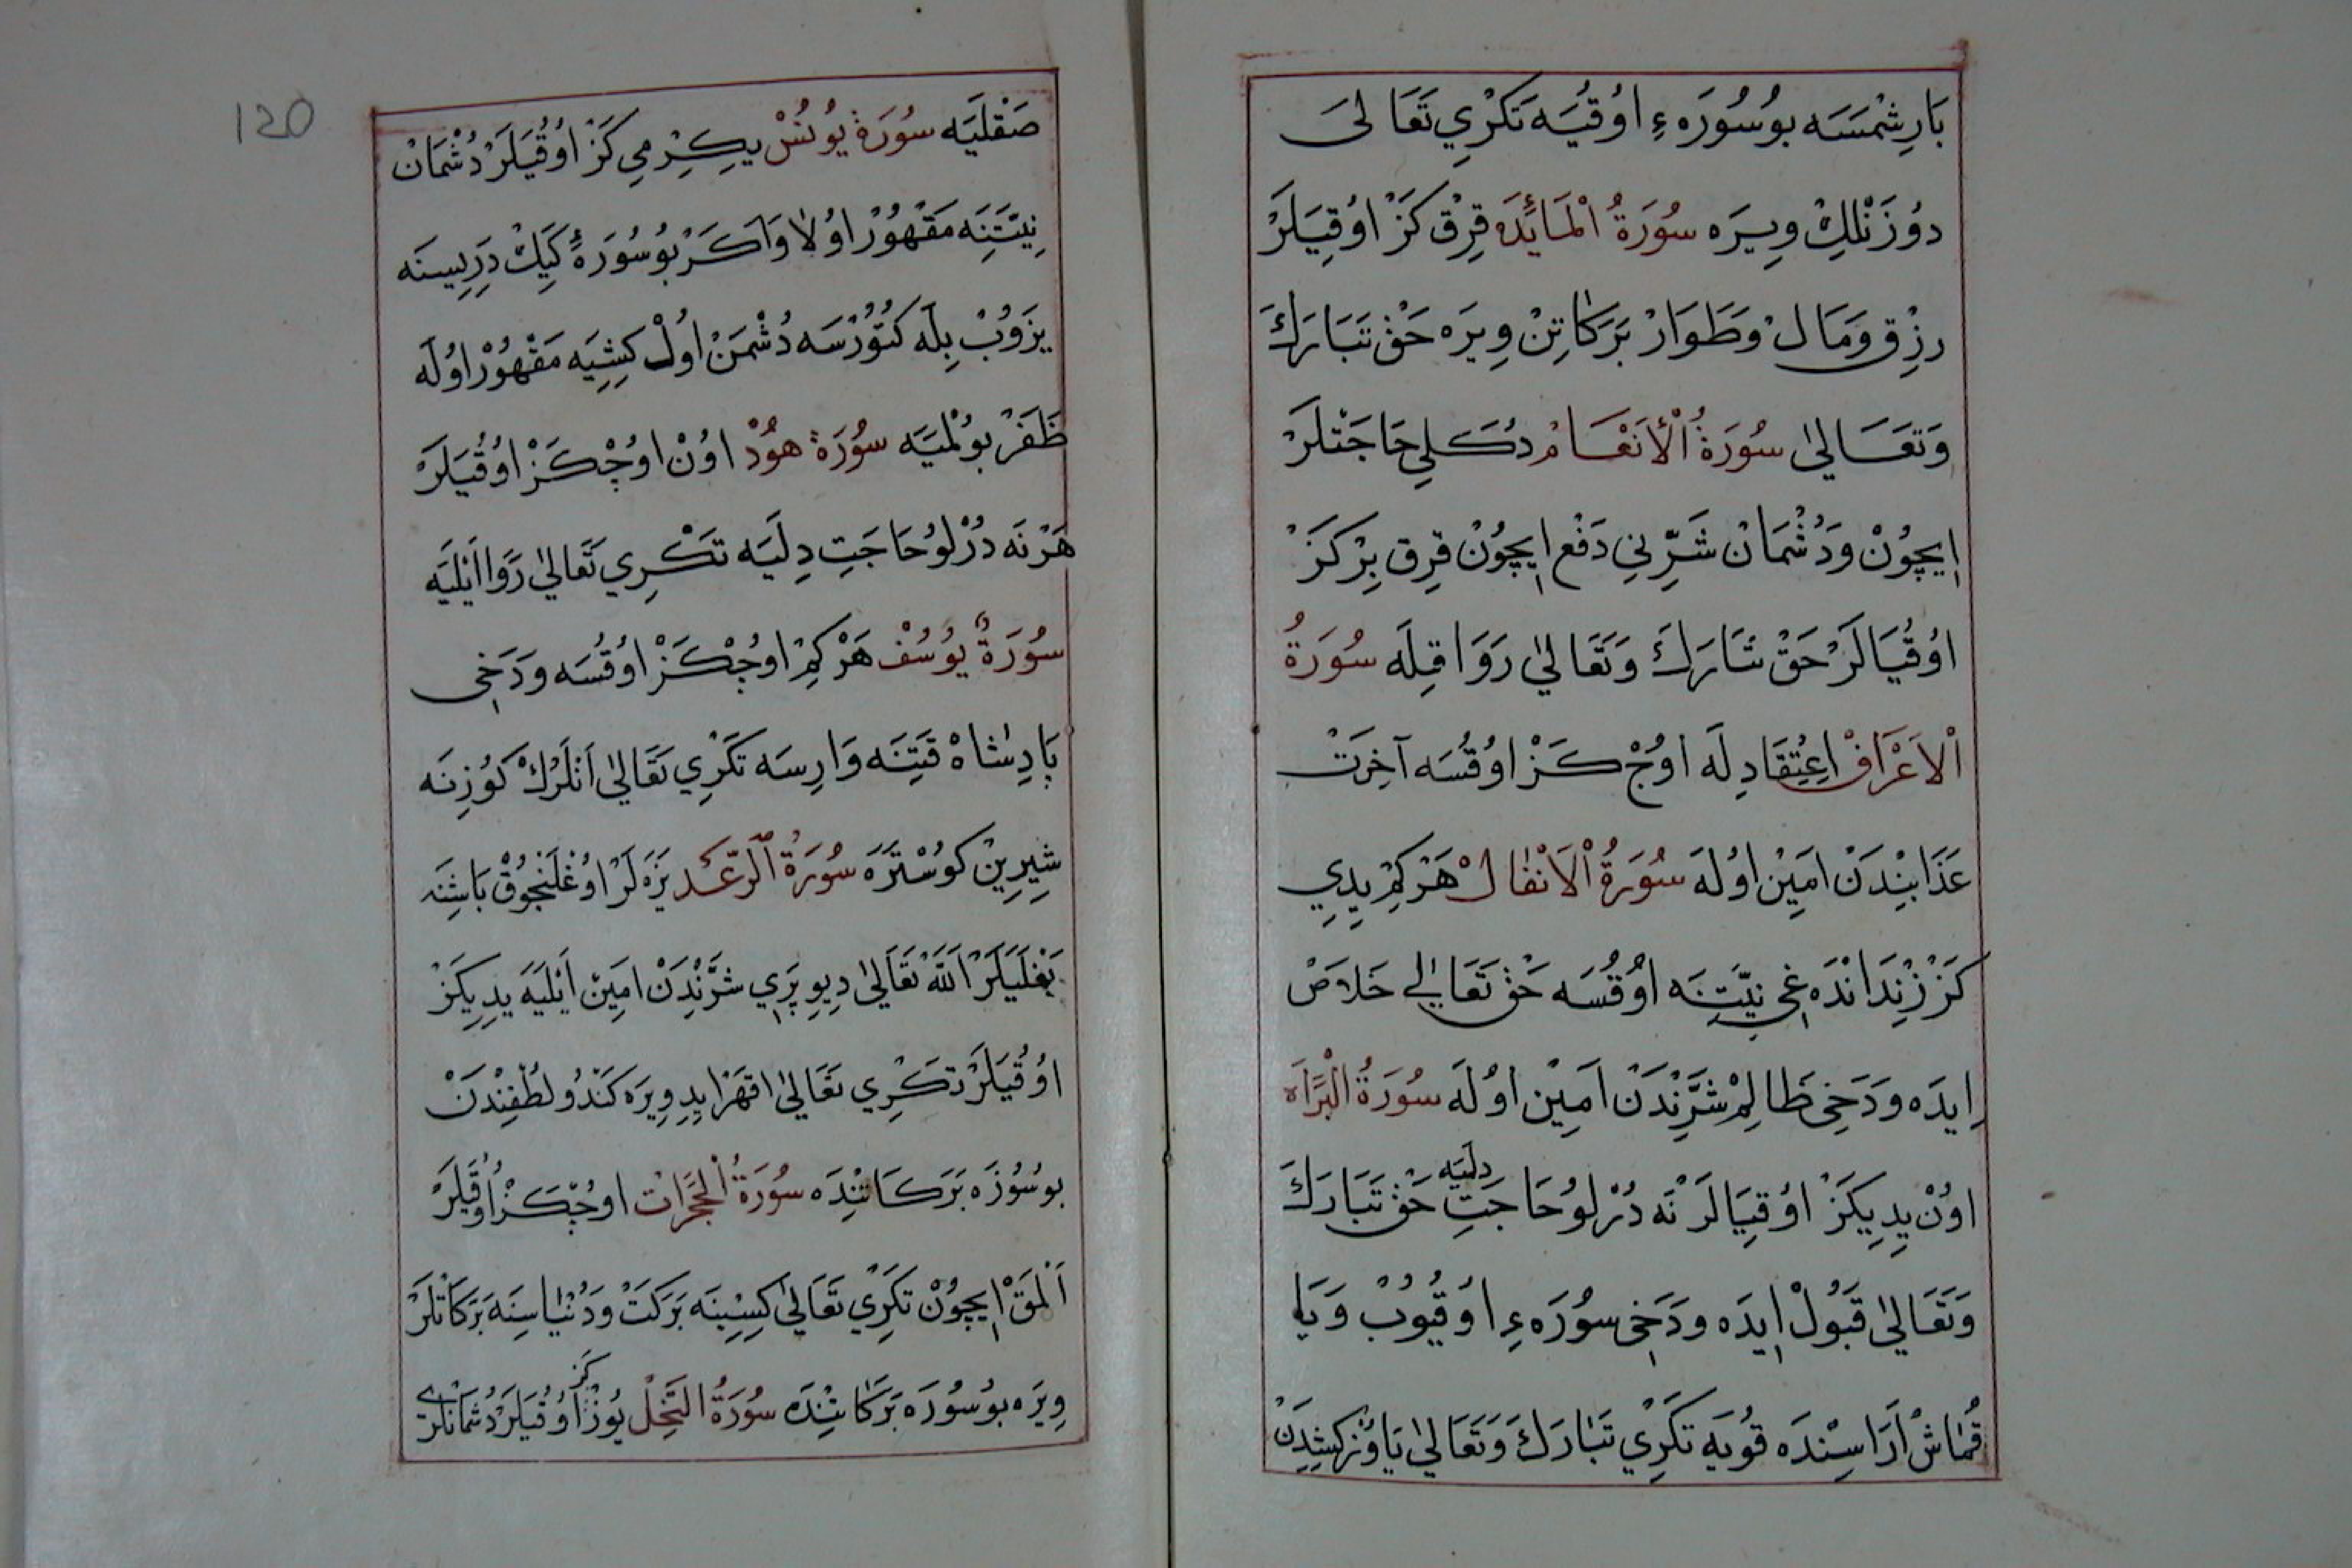 بَارِشْمَسَه بوُسُورَه ءِ اوُقُيَه تَكْرِي تَعَالىَ
دوُزَنْلِكْ وِيرَه سُورَةُ الْمَائِدَه قِرْق كَزْ اوُقِيَلَرْ
رِزْق وَمَالْ وَطَوَارْ بَرَكَاتِنْ وِيرَه حَقْ تَبَارَكَ
وَتَعَالىٰ سُورَةُ الْأَنْعَامْ دُكَلِي حَاجَتْلَرْ
اِيچوُنْ وَدُشْمَانْ شَرِّنِي دَفْع اِيچوُنْ قِرِق بِرْ كَزْ
اوُقُيَالَرْ حَقْ تَبَارَكَ وَتَعَالىٰ رَوَا قِلَه سُورَةُ
الْاَعْرَافْ اِعْتِقَادِلَه اوُچْ كَزْ اوُقُسَه آخِرَتْ
عَذَابِنْدَنْ اَمِينْ اوُلَه سُورَةُ الْاَنْفَالْ هَرْكِمْ يِدِي
كَزْ زِنْدَانْدَه غِي نِيَّتِنَه اوُقُسَه حَقْ تَعَالىٰ خَلَاصْ
اِيدَه وَدَخِي ظَالِمْ شَرِّنْدَنْ اَمِينْ اوُلَه سُورَةُ الْبَرَآءَه
اوُنْ يِدِي كَزْ اوُقِيَالَرْ نَه دُرْلوُ حَاجَتِ دِلَيَه حَقْ تَبَارَكَ
وَتَعَالىٰ قَبُولْ اِيدَه وَدَخِي سُورَه ءِ اوُقُيوُبْ وَيَا
قُمَاشْ اَرَاسِنْدَه قوُيَه تَكْرِي تَبَارَكَ وَتَعَالىٰ يَاوُزْ كِشِدَنْ
صَقْلَيَه سُورَة يوُنُسْ يِكِرْمِي كَزْ اوُقُيَلَرْ دُشْمَانْ
نِيَّتِنَه مَقْهوُرْ اوُلَا وَاَكَرْ بوُسُورَةُ كَيِكْ دَرِيسِنَه
يَزوُبْ بِلَه كَتوُرْسَه دُشْمَنْ اوُلْ كِشِيَه مَقْهوُرْ اوُلَه
ظَفَرْ بوُلْمَيَه سُورَة هوُدْ اوُنْ اوُچْ كَزْ اوُقُيَلَرْ
هَرْنَه دُرْلوُ حَاجَتِ دِلَيَه تَكْرِي تَعَالىٰ رَوَا اَيْلَيَه
سُورَةُ يوُسُفْ هَرْكِمْ اوُچْ كَزْ اوُقُسَه وَدَخِي
پَادِشَاهْ قَتِنَه وَارِسَه تَكْرِي تَعَالىٰ اَنْلَرُكْ كوُزِنَه
شِيرِينْ كوُسْتَرَه سُورَةُ الرَّعْد يَزَه لَرْ اوُغْلَنْجوُقْ بَاشِنَه
بَغْلَيَلَرْ اَللّٰه تَعَالىٰ دِيوِ پَرِي شَرِّنْدَنْ اَمِينْ اَيْلَيَه يِدِي كَزْ
اوُقُيَلَرْ تَكْرِي تَعَالىٰ اقهر ايدِوِيرَه كَنْدوُ لُطْفِنْدَنْ
بوُسُوزَه بَرَكَاتِنْدَه سُورَةُ الْحُجُرَاتْ اوُچْ كَزْ اوُقُيَلَرْ
اَلْمَقْ اِيچوُنْ تَكْرِي تَعَالىٰ كِسِبِنَه بَرَكَتْ وَدُنْيَاسِنَه بَرَكَاتْلَرْ
وِيرَه بوُسُورَه بَرَكَاتِنْدَه سُورَةُ النَّحْل يوُزْ كَز اوُقُيَلَرْ دُشْمَانْلَرِي